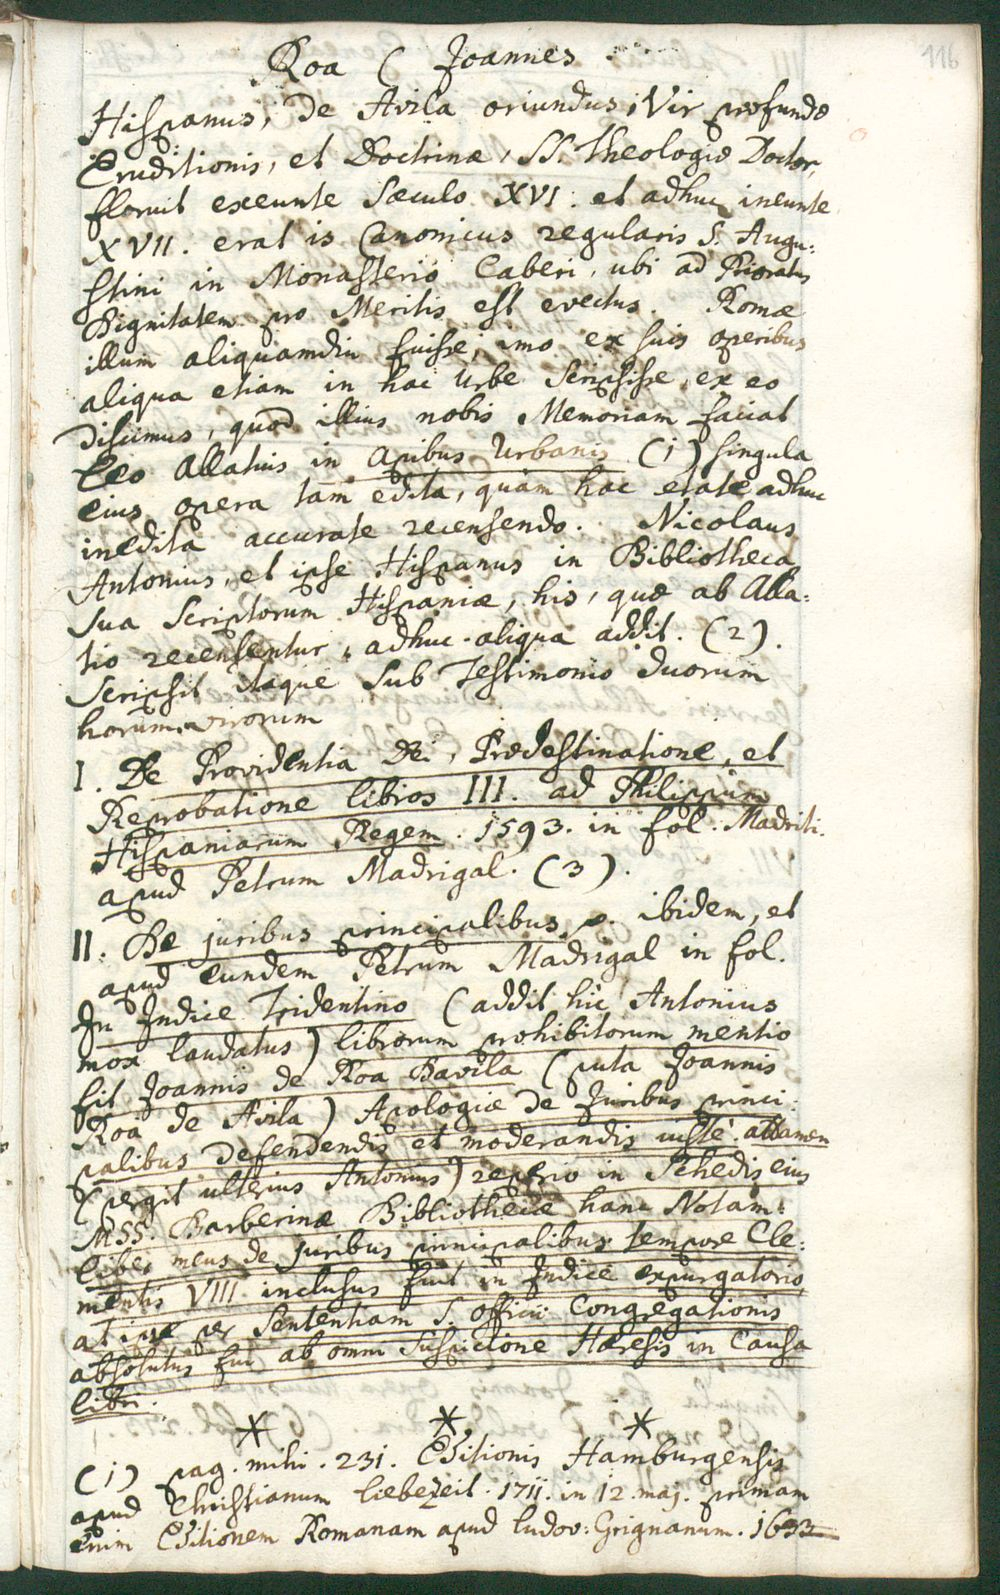 116
Roa ( Joannes .
Hispanus, De Avila oriundus, Vir profundæ
Eruditionis, et Doctrinæ, SS. Theologiæ Doctor,
floruit exeunte sæculo XVI. et adhuc ineunte
XVII. erat is Canonicus regularis S. Augu:
stini in Monasterio Caberi, ubi ad Prioratus
Dignitatem pro Meritis est evectus. Romæ
illum aliquamdiu fuisse, imo ex suis operibus
aliqua etiam in hac Urbe scripsisse, ex eo
discimus, quod illius nobis Memoriam faciat
Leo Allatius in Apibus Urbanis (1) singula
eius opera tam edita, quam hac etate adhuc
inedita accurate recensendo. Nicolaus
Antonius, et ipse Hispanus in Bibliotheca
sua Scriptorum Hispaniæ, his, quæ ab Alla:
tio recensentur, adhuc aliqua addit. (2).
Scripsit itaque sub Testimonio duorum
horum virorum
I. De Providentia Dei, Prædestinatione, et
Reprobatione libros III. ad Philippum
Hispaniarum Regem. 1593. in fol. Madriti.
apud Petrum Madrigal. (3).
II. De juribus principalibus p. ibidem, et
apud eundem Petrum Madrigal in fol.
In Indice Tridentino (addit hic Antonius
mox laudatus) librorum prohibitorum mentio
fit Joannis de Roa Davila (puta Joannis
Roa de Avila) Apologiæ de Juribus princi:
palibus defendendis et moderandis iuste. attamen
(pergit ulterius Antonius) reperio in Schedis eius
MSS. Barberinæ Bibliothecæ hanc Notam:
Liber meus de juribus principalibus tempore Cle:
mentis VIII inclusus fuit in Indice expurgatorio,
at ipse per Sententiam S. Officii Congregationis
absolutus fui ab omni Suspicione Hæresis in Causa
libri.
* * *
(1) pag. mihi. 231. Editionis Hamburgensis
apud Christianum Liebezeit. 1711. in 12. maj. primam
enim Editionem Romanam apud Ludov: Grignanum. 1633